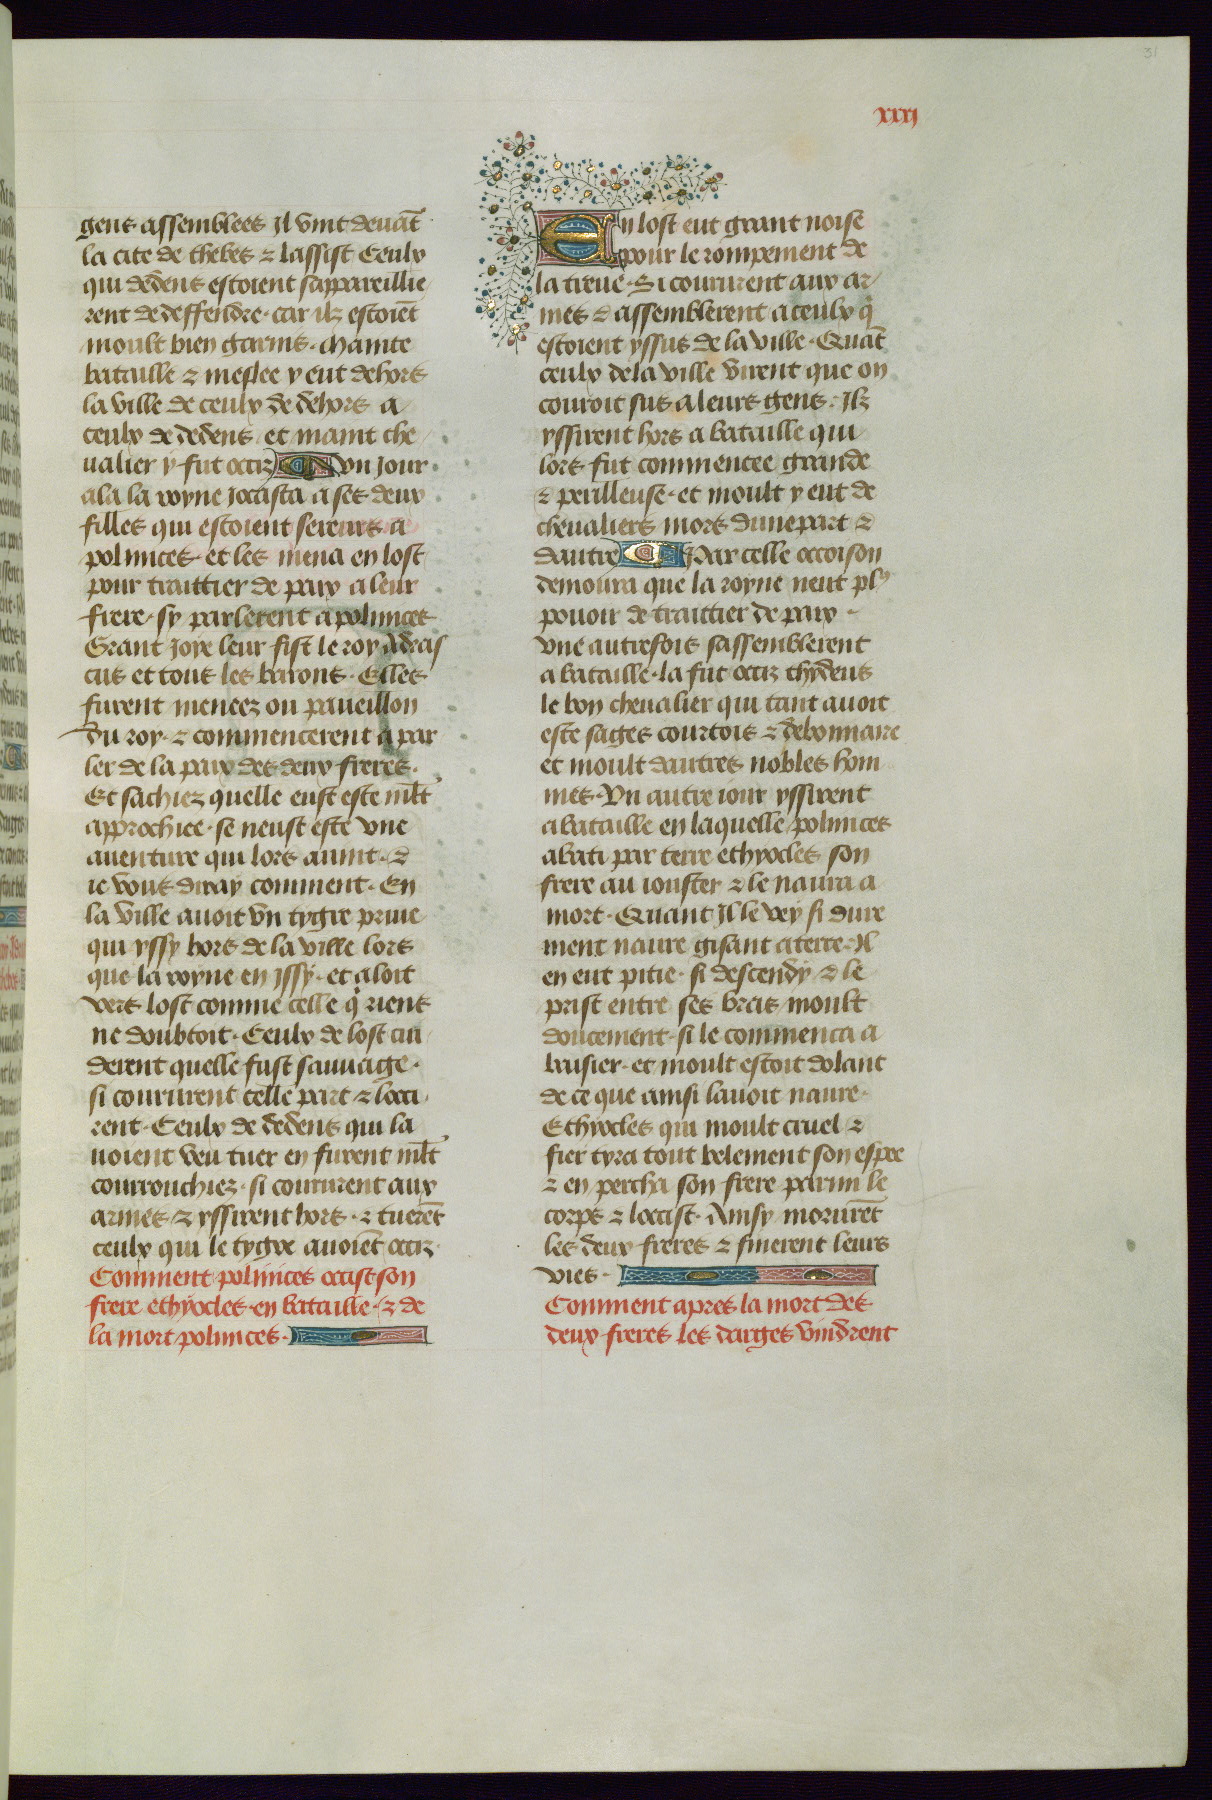 31
xxxj
gens assemblees Jl vint deuãt
la cite de thebes ⁊ lassist Ceulx
qui dedens estoient sappareillie
rent de deffendre. car ilz estoiẽt
moult bien garnis. Mainte
bataille ⁊ meslee y eut dehors
la ville de ceulx de dehors a
ceulx de dedens et maint che
ualier y fut occiz vn jour
ala la royne jocasta a ses deux
filles qui estoient sereurs a
polinices. et les mena en lost
pour traittier de paix a leur
frere. sy parlerent a polinices
Grant joye leur fist le roy Adras
cus et tous les barons. Elles
furent menees ou paueillon
du roy. ⁊ commencerent a par
ler de la paix des deux freres.
Et sachiez quelle eust este ml̃t
approchiee. se neust este vne
auenture qui lors auint. ⁊
ie vous diray comment. En
la ville auoit vn tygre priue
qui yssy hors de la ville lors
que la royne en jssy. et aloit
vers lost comme celle q̃ riens
ne doubtoit. Ceulx de lost cui
derent quelle fust sauuage.
si coururent celle part ⁊ locci
rent. Ceulx de dedens qui la
uoient veu tuer en furent ml̃t
courrouchiez. si coururent aux
armes ⁊ yssirent hors. ⁊ tuerẽt
ceulx qui le tygre auoiẽt occiz.
Comment polinices occist son
frere ethyocles en bataille. ⁊ de
la mort polinices.
En lost eut grant noise
pour le rompement de
la treue. Si coururent aux ar
mes ⁊ assemblerent a ceulx q̃
estoient yssus de la ville. Quãt
ceulx de la ville virent que on
couroit sus a leurs gens. Jlz
yssirent hors a bataille qui
lors fut commencee grande
⁊ perilleuse. et moult y eut de
cheualiers mors dune part ⁊
dautre Par celle occoison
demoura que la royne neut plꝰ
pouoir de traittier de paix.
vne autresfois sassemblerent
a bataille. la fut occiz thydeus
le bon cheualier qui tant auoit
este sages courtois ⁊ debonnaire
et moult dautres nobles hom
mes. Vn autre iour yssirent
a bataille en laquelle polinices
abati par terre ethyocles son
frere au iouster ⁊ le naura a
mort. Quant Jl le vey si dure
ment naure gisant a terre. Jl
en eut pitie. si descendy ⁊ le
prist entre ses bras moult
doucement. si le commenca a
baisier. et moult estoit dolant
de ce que ainsi lauoit naure.
Ethyocles qui moult cruel ⁊
fier tyra tout belement son espee
⁊ en percha son frere parmi le
corps ⁊ loccist. Ainsy morurẽt
les deux freres ⁊ finerent leurs
vies.
Comment apres la mort des
deux freres les darges vindrent